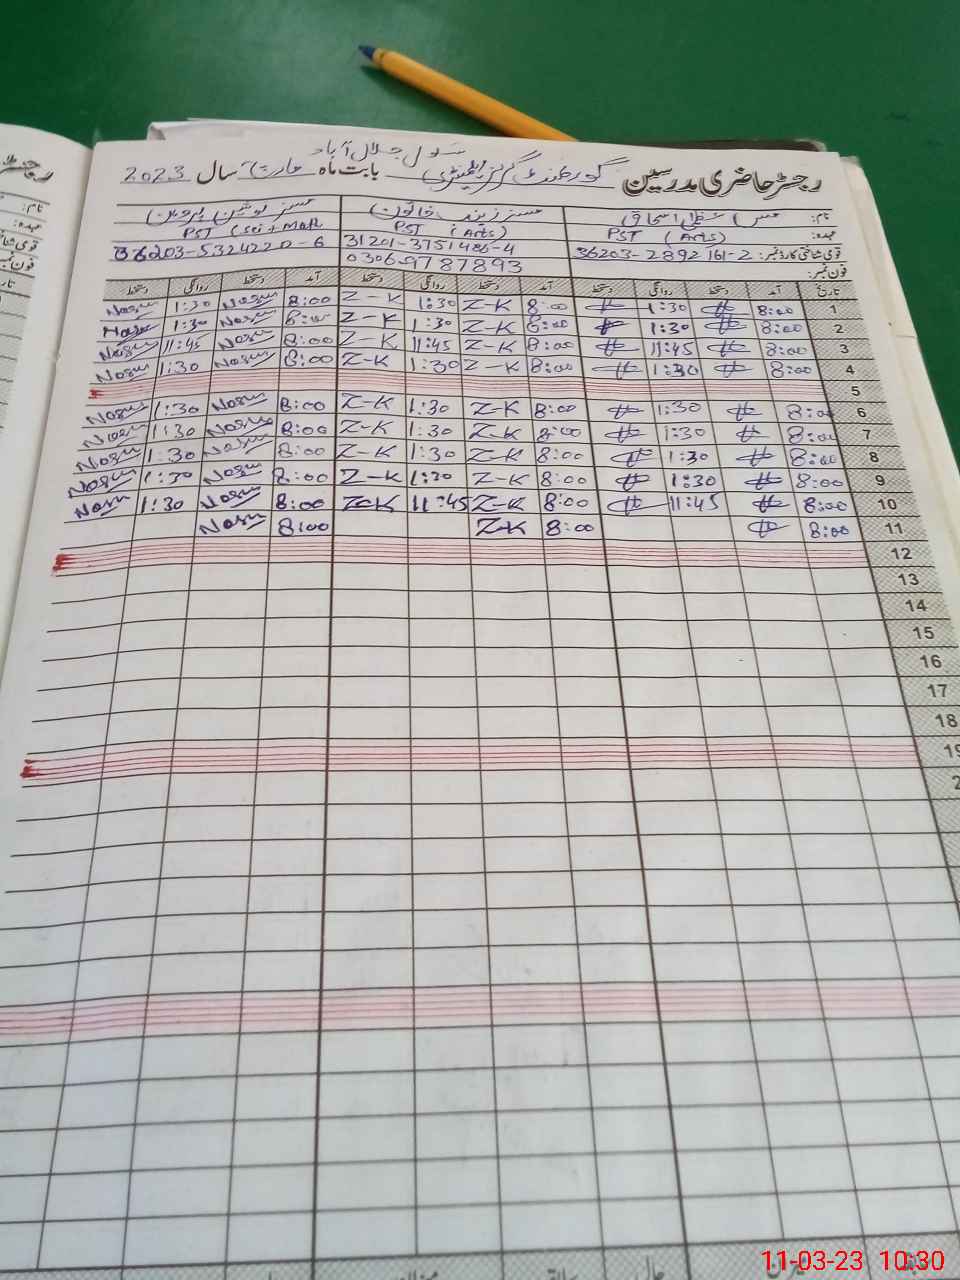 سکول جلال آباد
رجسٹر حاضری مدرسین گورنمنٹ گرلز ایلیمنٹری بابت ماہ مارچ سال 2023
نام: مس اسحاق مسز زینت خاتون مسز نوشین پروین
عہدہ: PST (Arts) PST (Arts) PST (Sci + Math
قومی شناختی کارڈ نمبر: 36203-2892161-2 31201-3751486-4 36203-5324220-6
فون نمبر: 03069787893
تاریخ آمد دستخط روانگی دستخط آمد دستخط روانگی دستخط آمد دستخط روانگی دستخط
1 8:00 1:30 8:00 Z-K 1:30 Z-K 8:00 1:30
2 8:00 1:30 8:00 Z-K 1:30 Z-K 8:00 1:30
3 8:00 11:45 8:00 Z-K 11:45 Z-K 8:00 11:45
4 8:00 1:30 8:00 Z-K 1:30 Z-K 8:00 1:30
5
6 8:00 1:30 8:00 Z-K 1:30 Z-K 8:00 1:30
7 8:00 1:30 8:00 Z-K 1:30 Z-K 8:00 1:30
8 8:00 1:30 8:00 Z-K 1:30 Z-K 8:00 1:30
9 8:00 1:30 8:00 Z-K 1:30 Z-K 8:00 1:30
10 8:00 11:45 8:00 Z-K 11:45 Z-K 8:00 1:30
11 8:00 8:00 Z-K 8:00
12
13
14
15
16
17
18
19
2
11-03-23 10:30